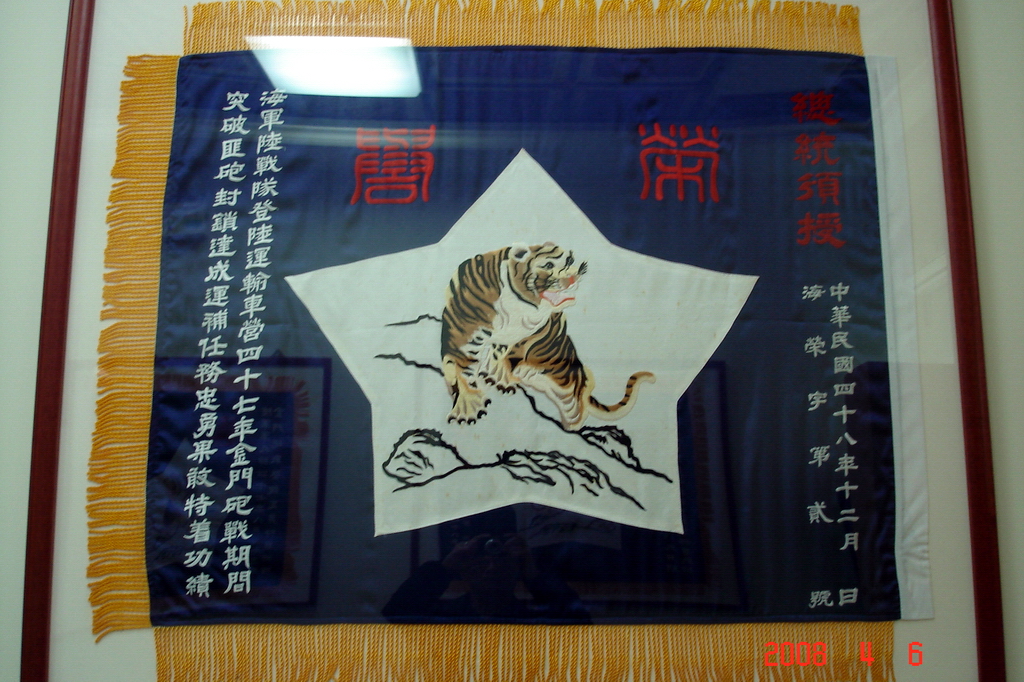 總統頒授
中華民國四十八年十二月 日
海榮字第貳號
榮譽
海軍陸戰隊登陸運輸車營四十七年金門砲戰期間
突破匪砲封鎖達成運補任務忠勇果敢特着功績
2008 4 6